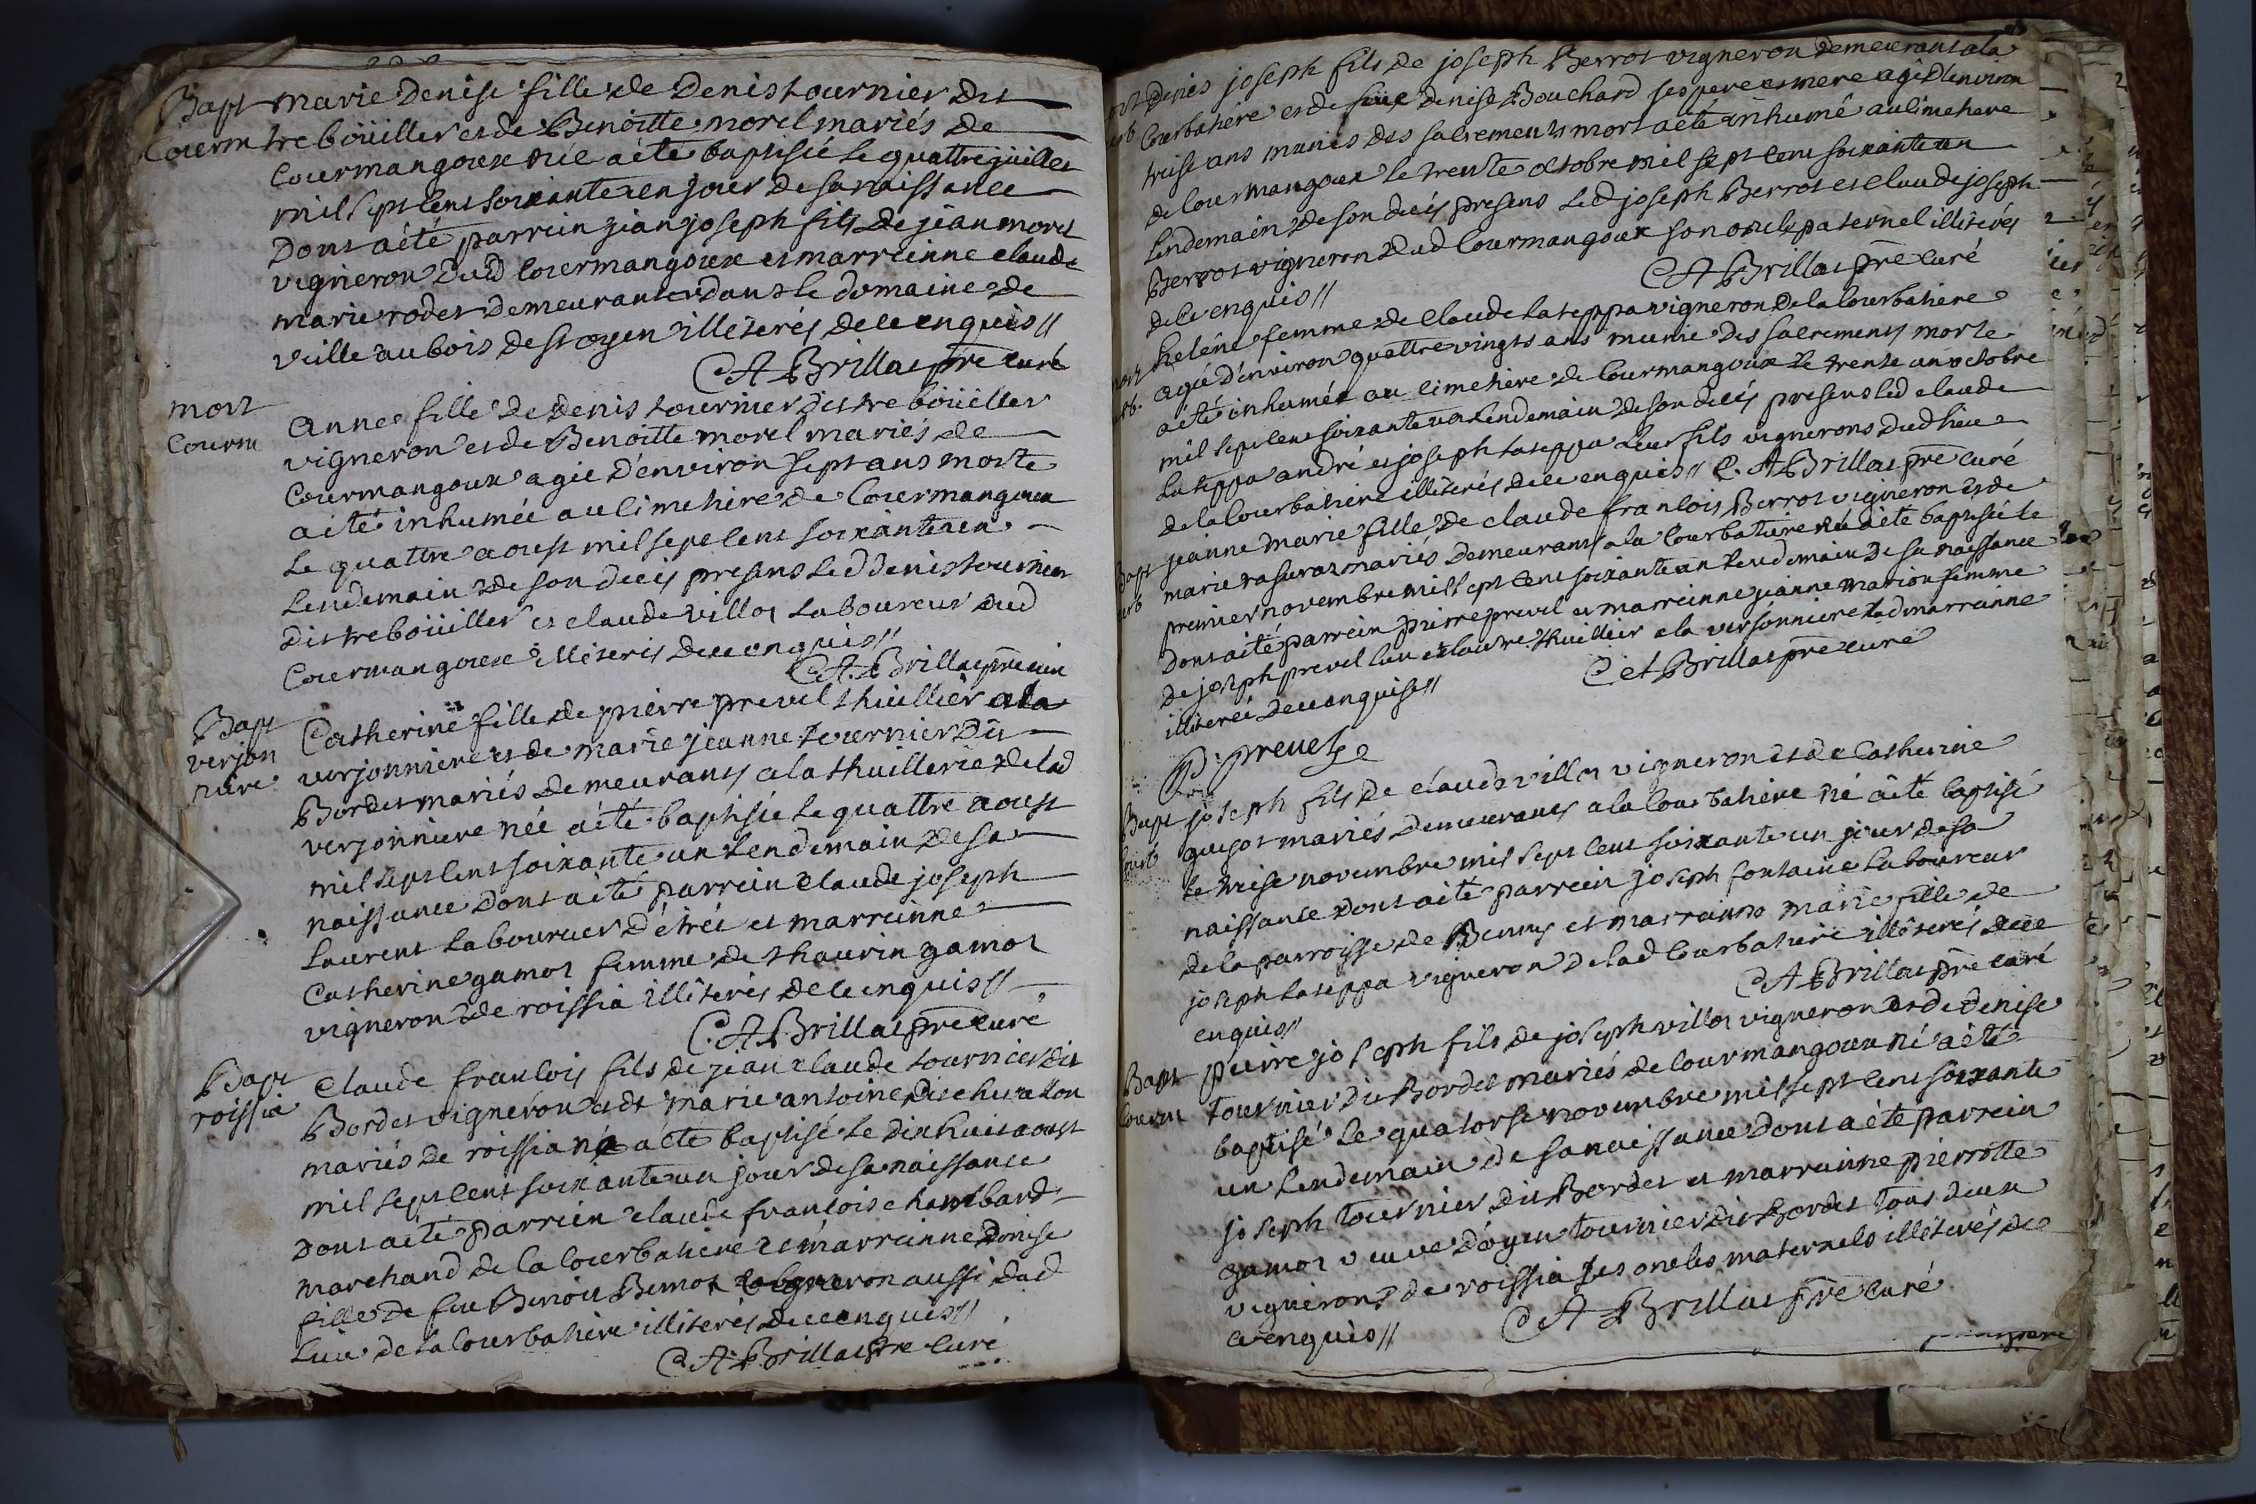 Bapt marie Denise fille de Denis tournier dit
Courm trebouiller et de Benoitte morel mariés de
Courmangoux née a été baptisée le quattre juillet
mil sept cent soixante un jour de sa naissance
Dont a été parrein jean joseph fils de jean morel
vigneron dud Courmangoux et marreinne claude
marie rodet demeurante dans le domaine de
veille au bois de st oyen illiterés de ce enquis //
C A Brillat prê curé
mort
Courm
anne fille de Denis tournier dit trebouiller
vigneron et de Benoitte morel mariés de
Courmangoux agée d'environ sept ans morte
a été inhumée au cimetiere de Courmangoux
le quattre aoust mil sept cent soixante un
lendemain de son decés presens led denis tournier
dit trebouiller et claude villot laboureur dud
Courmangoux illiterés de ce enquis //
C. A. Brillat prê curé
Bapt
verjon
niere
Catherine fille de pierre prevel thuillier a la
verjonniere et de marie jeanne tournier dit
Bordet mariés demeurants a la thuillerie de lad
verjonniere née a été baptisée le quattre aoust
mil sept cent soixante un lendemain de sa
naissance dont a été parrein claude joseph
laurent laboureur d'étréz et marreinne
Catherine gamot femme de thaurin gamot
vigneron de roissia illiterés de ce enquis //
C. A Brillat prê curé
Bapt
roissia
Claude francois fils de jean claude tournier dit
Bordet vigneron et de marie antoine
mariés de roissia né a été baptisé le dix huit aoust
mil sept cent soixante un jour de sa naissance
Dont a été parrein claude francois chambard
marchand de la Courbatiere et marreinne Denise
fille de feu Benoit vigneron aussi dud
lieu de la Courbatiere illiterés de ce enquis //
C. A. Brillat prê curé
Denies joseph fils de joseph Berrot vigneron demeurant a la
Courbatiere et de feüe denise Bouchard ses pere et mere agé d'environ
treise ans munis des sacremens mort a été inhumé au cimetiere
de Courmangoux le trente octobre mil sept cent soixante un
lendemain de son decés presens led joseph Berrot et claude joseph
Berrot vigneron dud Courmangoux son oncle paternel illiterés
de ce enquis //
C A Brillat prê curé
helêne femme de claude lateppa vigneron de la Courbatiere
agée d'environ quattre vingts ans munie des sacremens morte
a été inhumée au cimetiere de Courmangoux le trente un octobre
mil sept cent soixante un lendemain de son decés presens led claude
lateppa andré et joseph lateppa leur fils vignerons dud lieu
de la Courbatiere illiterés de ce enquis // C. A Brillat prê curé
jeanne marie fille de claude francois Berrot vigneron et de
marie mariés demeurants a la Courbatiere née a été baptisée le
premier novembre mil sept cent soixante un lendemain de sa naissance
Dont a été parrein pierre prevel et marreinne jeanne marion femme
de joseph prevel l'un et l'autre thuillier a la versonniere lad marreinne
illiterée de ce enquise //
C et Brillat prê curé
P: prevel
Bapt joseph fils de claude villot vigneron et de Catherine
guigot mariés demeurants a la Courbatiere né a été baptisé
le treise novembre mil sept cent soixante un jour de sa
naissance dont a été parrein joseph fontaine laboureur
de la parroisse de Benny et marreinne marie fille de
joseph lateppa vigneron de lad Courbatiere illiterés de ce
enquis //
C A Brillat prê curé
Bapt pierre joseph fils de joseph villot vigneron et de denise
Courm tournier dit Bordet mariés de Courmangoux né a été
baptisé le quatorse novembre mil sept cent soixante
un lendemain de sa naissance dont a été parrein
joseph tournier dit Bordet et marreinne pierrotte
gamot veuve d'oyen tournier dit Bordet tous deux
vignerons de roissia ses oncles maternels illiterés de
ce enquis //
C A Brillat prê curé